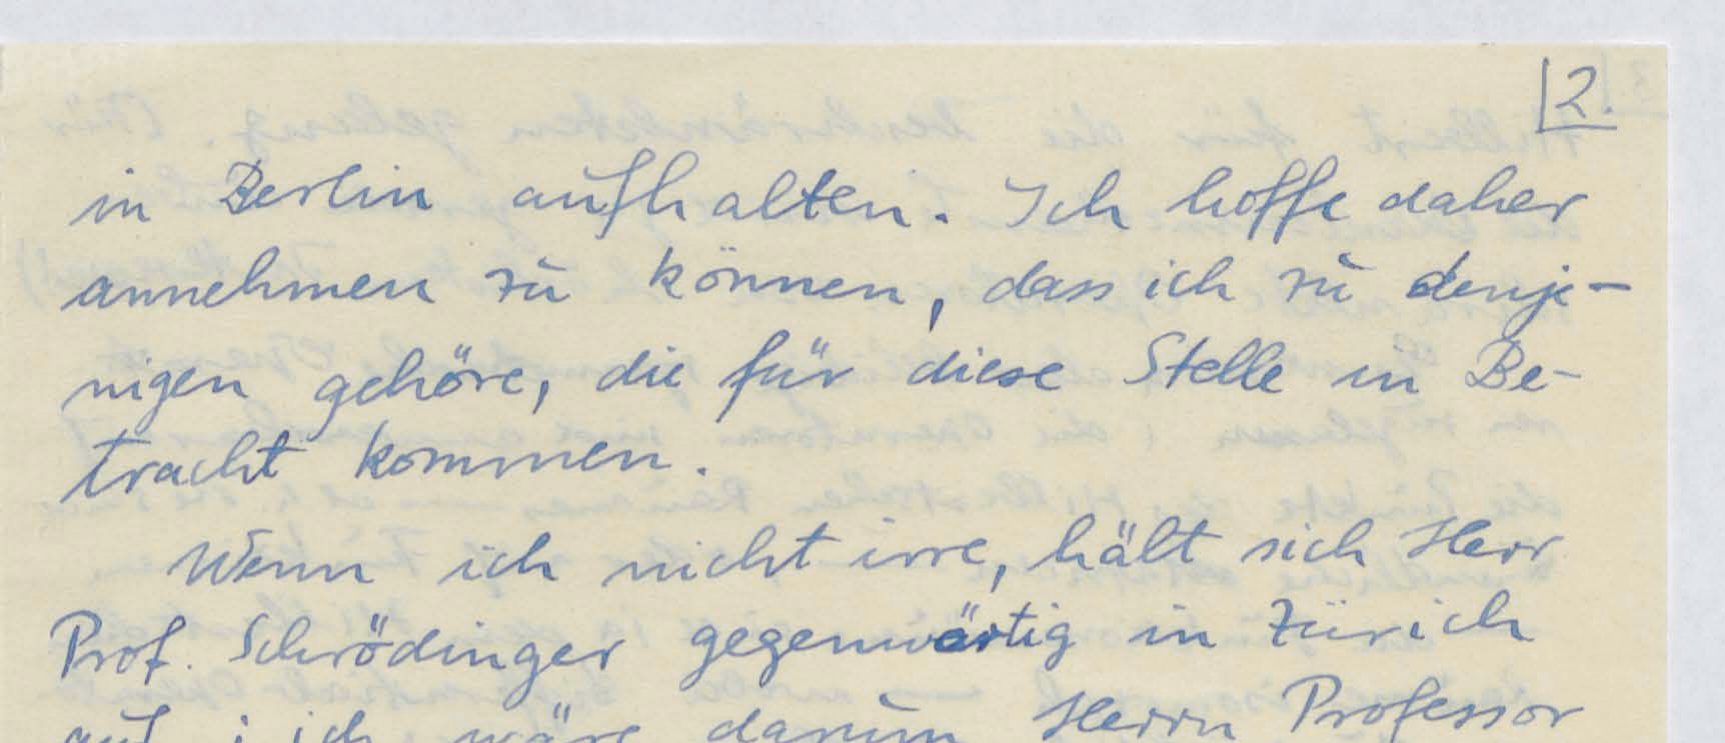 2.
in Berlin aufhalten. Ich hoffe daher
annehmen zu können, dass ich zu denje-
nigen gehöre, die für diese Stelle in Be-
tracht kommen.
Wenn ich nicht irre, hält sich Herr
Prof. Schrödinger gegenwärtig in Zürich
auf; ich wäre darum Herrn Professor